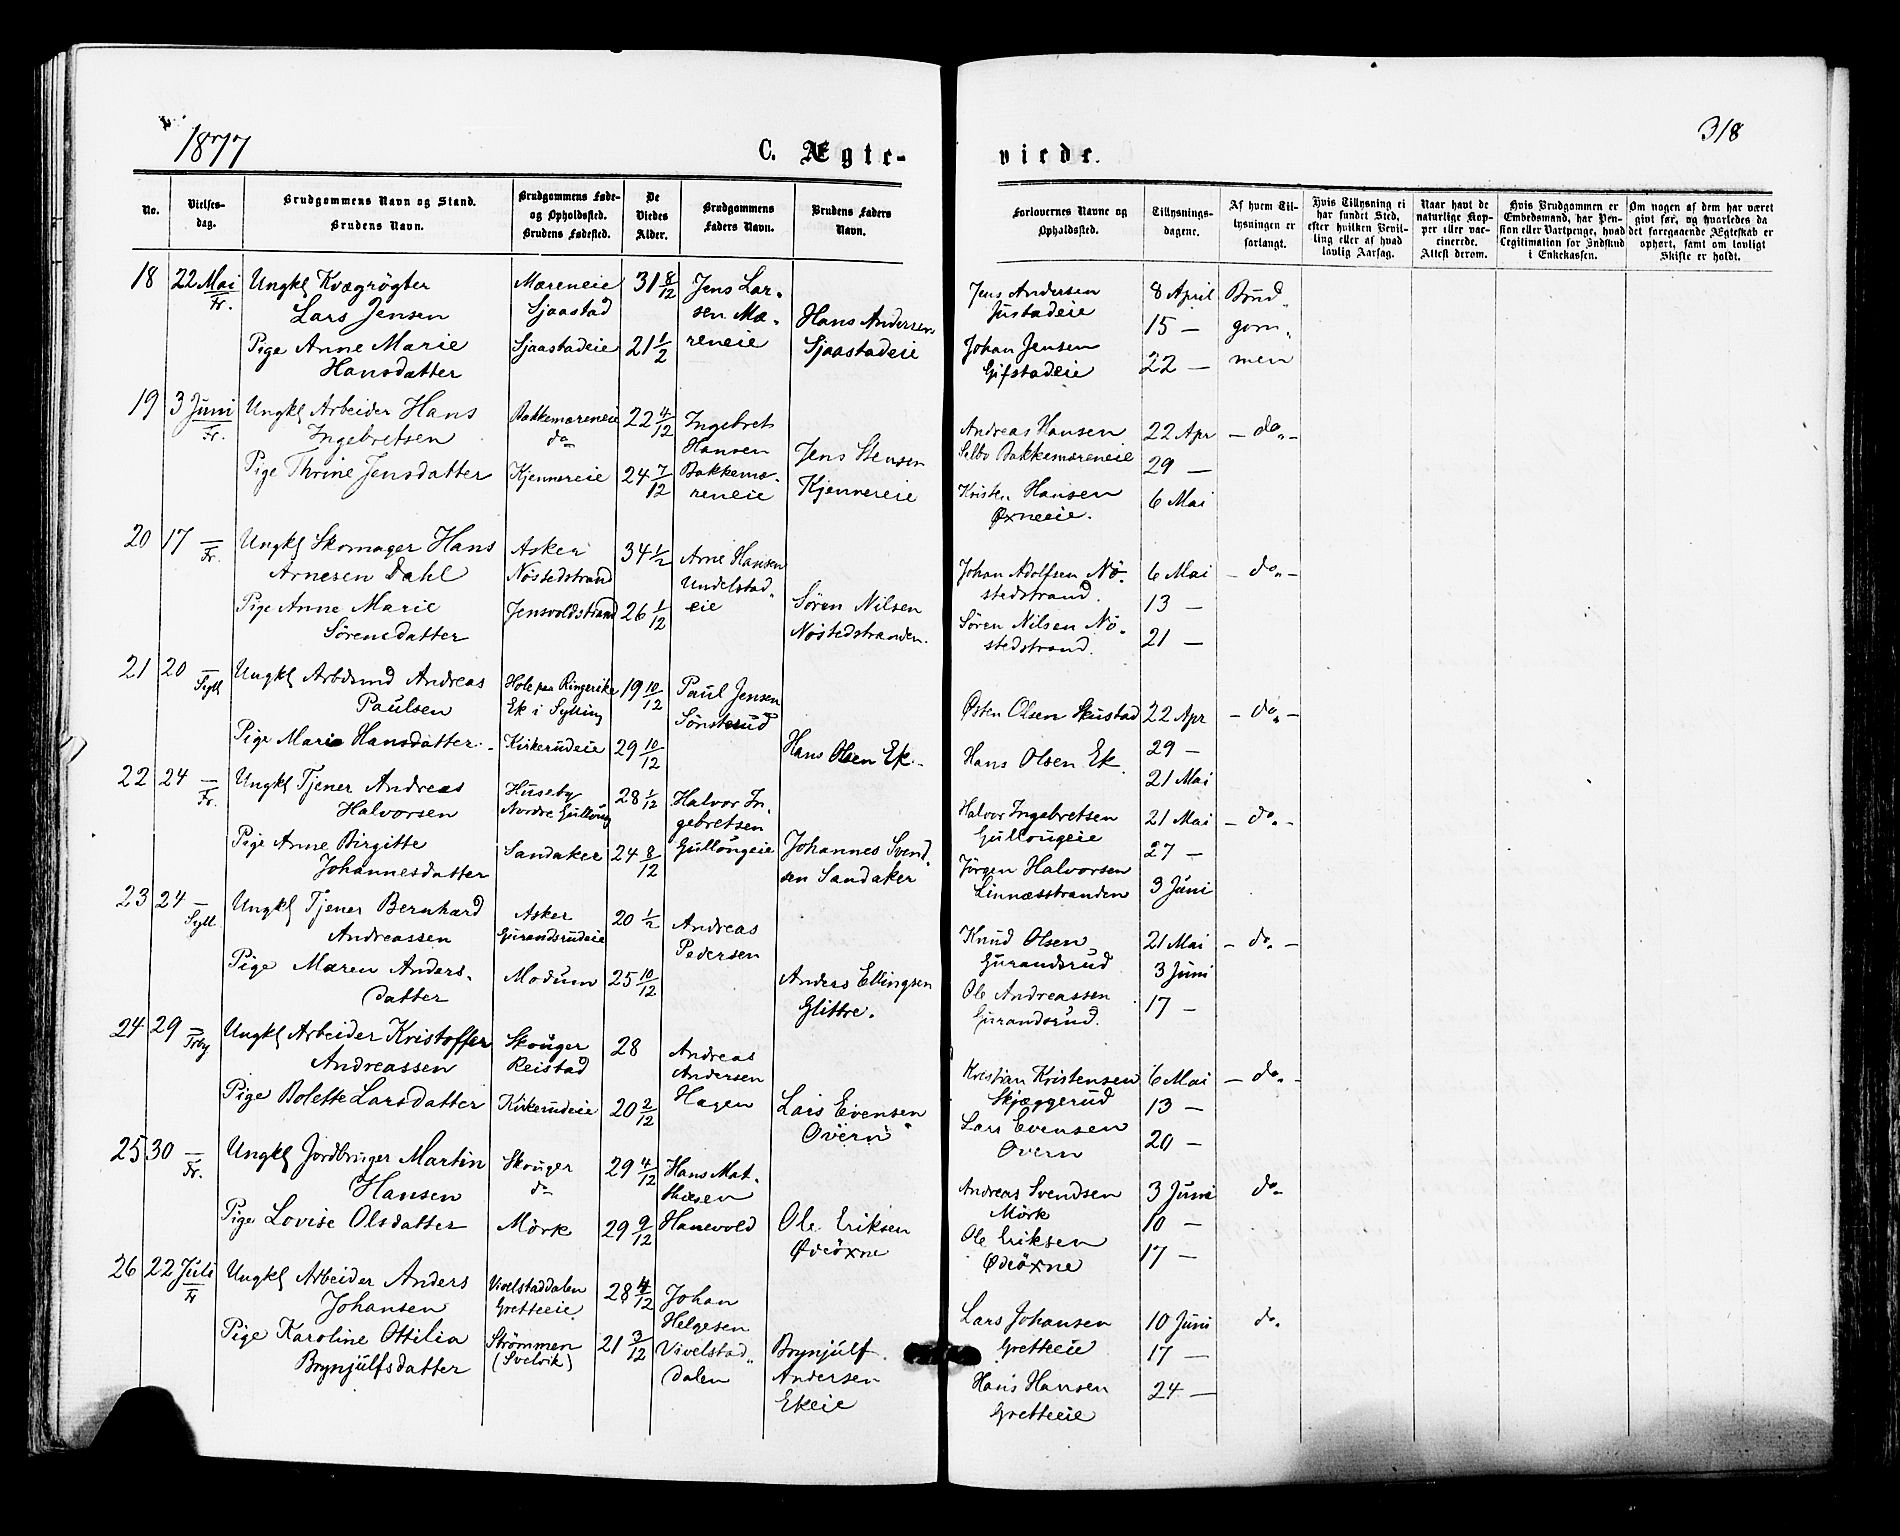 1877
C. Ægte-
No.
Vielses-
dag.
Brudgommens Navn og Stand.
Brudens Navn.
Brudgommens Føde-
og Opholdsted.
Brudens Fødested.
De
Viedes
Alder.
Brudgommens
Faders Navn.
Brudens Faders
Navn.
18 22 Mai
Fr.
Ungkl Kvægrögter
Lars Jensen
Pige Anne Marie
Hansdatter
Mæreneie
Sjaastad
Sjaastadeie
31 8/12
21 1/2
Jens Lar-
sen Mæ-
reneie
Hans Andersen
Sjaastadeie
19 3 Juni
Fr.
Ungkl Arbeider Hans
Ingebretsen
Pige Thrine Jensdatter
Bakkemæreneie
do
Kjennereie
22 4/12
24 7/12
Ingebret
Hansen
Bakkemæ-
reneie
Jens Stensen
Kjennereie
20 17 —
Fr.
Ungkl Skomager Hans
Arnesen Dahl
Pige Anne Marie
Sörensdatter
Asker
Nöstedstrand
Jensvoldstrand
34 1/2
26 1/12
Arne Hansen
Undelstad-
eie
Sören Nilsen
Nöstedstranden.
21 20 —
Syll
Ungkl Arbdsmd Andreas
Paulsen
Pige Marie Hansdatter.
Hole paa Ringerike
Ek i Sylling
Kirkerudeie
19 10/12
29 10/12
Paul Jensen
Sönsterud
Hans Olsen Ek.
22 24 —
Fr.
Ungkl Tjener Andreas
Halvorsen
Pige Anne Birgitte
Johannesdatter
Huseby
Nordre Gulloug
Sandaker
28 1/12
24 8/12
Halvor In-
gebretsen
Gullougeie
Johannes Svend-
sen Sandaker
23 24 —
Syll.
Ungkl Tjener Bernhard
Andreassen
Pige Maren Anders-
datter
Asker
Gurandsrudeie
Modum
20 1/2
25 10/12
Andreas
Pedersen
Anders Ellingsen
Glittre.
24 29 —
Trby
Ungkl Arbeider Kristoffer
Andreassen
Pige Bolette Larsdatter
Skouger
Reistad
Kirkerudeie
28
20 2/12
Andreas
Andersen
Hagen
Lars Evensen
Overn
25 30 —
Fr.
Ungkl Jordbruger Martin
Hansen
Pige Lovise Olsdatter
Skouger
do
Mörk
29 4/12
29 9/12
Hans Mat-
hisen
Hanevold
Ole Eriksen
Ödeöxne
26 22 Juli
Fr
Ungkl Arbeider Anders
Johansen
Pige Karoline Ottilia
Brynjulfsdatter
Vivelstaddalen
Gretteeie
Strömmen
(Svelvik)
28 4/12
21 3/12
Johan
Helgesen
Vivelstad-
dalen
Brynjulf
Andersen
Ekeie
318
viede.
Forlovernes Navne og
Opholdsted.
Tillysnings-
dagene.
Af hvem Til-
lysningen er
forlangt.
Hvis Tillysning ei
har fundet Sted,
efter hvilken Bevil-
ling eller af hvad
lovlig Aarsag.
Naar havt de
naturlige Kop-
per eller vac-
cinerede.
Attest derom.
Hvis Brudgommen er
Embedsmand, har Pen-
sion eller Vartpenge, hvad
Legitimation for Indskud
i Enkekassen.
Om nogen af dem har været
givt før, og hvorledes da
det foregaaende Ægteskab er
ophørt, samt om lovligt
Skifte er holdt.
Jens Andersen
Justadeie
Johan Jensen
Gifstadeie
8 April
15 —
22 —
Brud-
gom-
men
Andreas Hansen
Selbo Bakkemæreneie
Kristen Hansen
Öxneeie.
22 Apr
29 —
6 Mai
— do. —
Johan Adolfsen Nö-
stedstrand.
Sören Nilsen Nö-
stedstrand.
6 Mai
13 —
21 —
— do. —
Østen Olsen Skustad
Hans Olsen Ek.
22 Apr
29 —
21 Mai
— do. —
Halvor Ingebretsen
Gullougeie
Jörgen Halvorsen
Linnæsstranden
21 Mai
27 —
3 Juni
— do. —
Knud Olsen
Gurandsrud
Ole Andreassen
Gurandsrud.
21 Mai
3 Juni
17 —
— do. —
Kristian Kristensen
Skjæggerud
Lars Evensen
Overn
6 Mai
13 —
20 —
— do. —
Andreas Svendsen
Mörk
Ole Eriksen
Ödeöxne
3 Juni
10 —
17 —
do
Lars Johansen
Gretteeie
Hans Hansen
Gretteeie
10 Juni
17 —
24 —
do